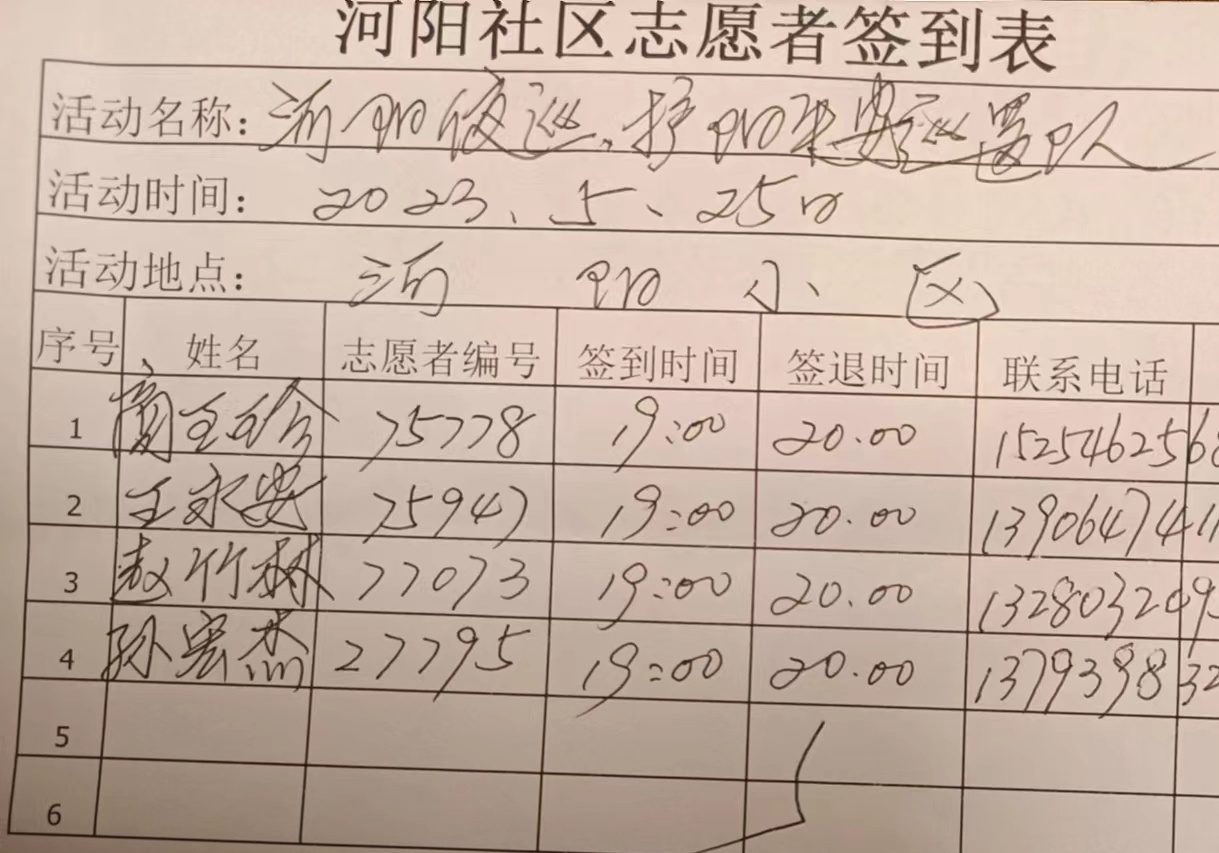 河阳社区志愿者签到表
活动名称：河阳夜巡，护阳平安巡逻队
活动时间：2023、5、25日
活动地点：河阳小区
序号 姓名 志愿者编号 签到时间 签退时间 联系电话
1 75778 19:00 20.00 152546256
2 王永安 75947 19:00 20.00 1390647411
3 赵竹林 77073 19:00 20.00 132803209
4 孙宏杰 27795 19:00 20.00 137939832
5
6